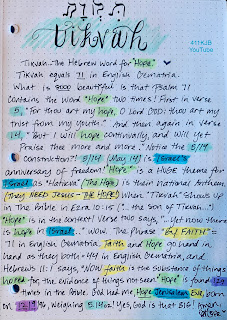 tikvah
411KJB
YouTube
Tikvah...The Hebrew word for "Hope."
Tikvah equals 71 in English Gematria.
What is SOOO beautiful is that Psalm 71
contains the word "Hope" two times! First in verse
5, "For thou art my hope, O Lord GOD: thou art my
trust from my youth." And then again in verse
14, "But I will hope continually, and will yet
Praise thee more and more." Notice the 5/14
construction?! 5/14 (May 14) is Israel's
anniversary of freedom! "Hope" is a HUGE theme for
Israel as "Hatikvah" (The Hope) is their national Anthem.
(they NEED Jesus - THE HOPE!) When "Tikvah" shows up
in The Bible in Ezra 10:15 ("...the son of Tikvah...")
"Hope" is in the context! Verse two says, "...Yet now there
is hope in Israel..." WOW. The phrase "By FAITH" =
71 in English Gematria. Faith and Hope go hand in
hand as they both = 44 in English Gematria, and
Hebrews 11:1 says, "NOW faith is the substance of things
hoped for, the evidence of things not seen." "Hope" is found 129
times in the Bible. God had me, Hope Jerusalem Eve, born
on 12/9/96, weighing 5.14oz! Yes, God is that BIG!